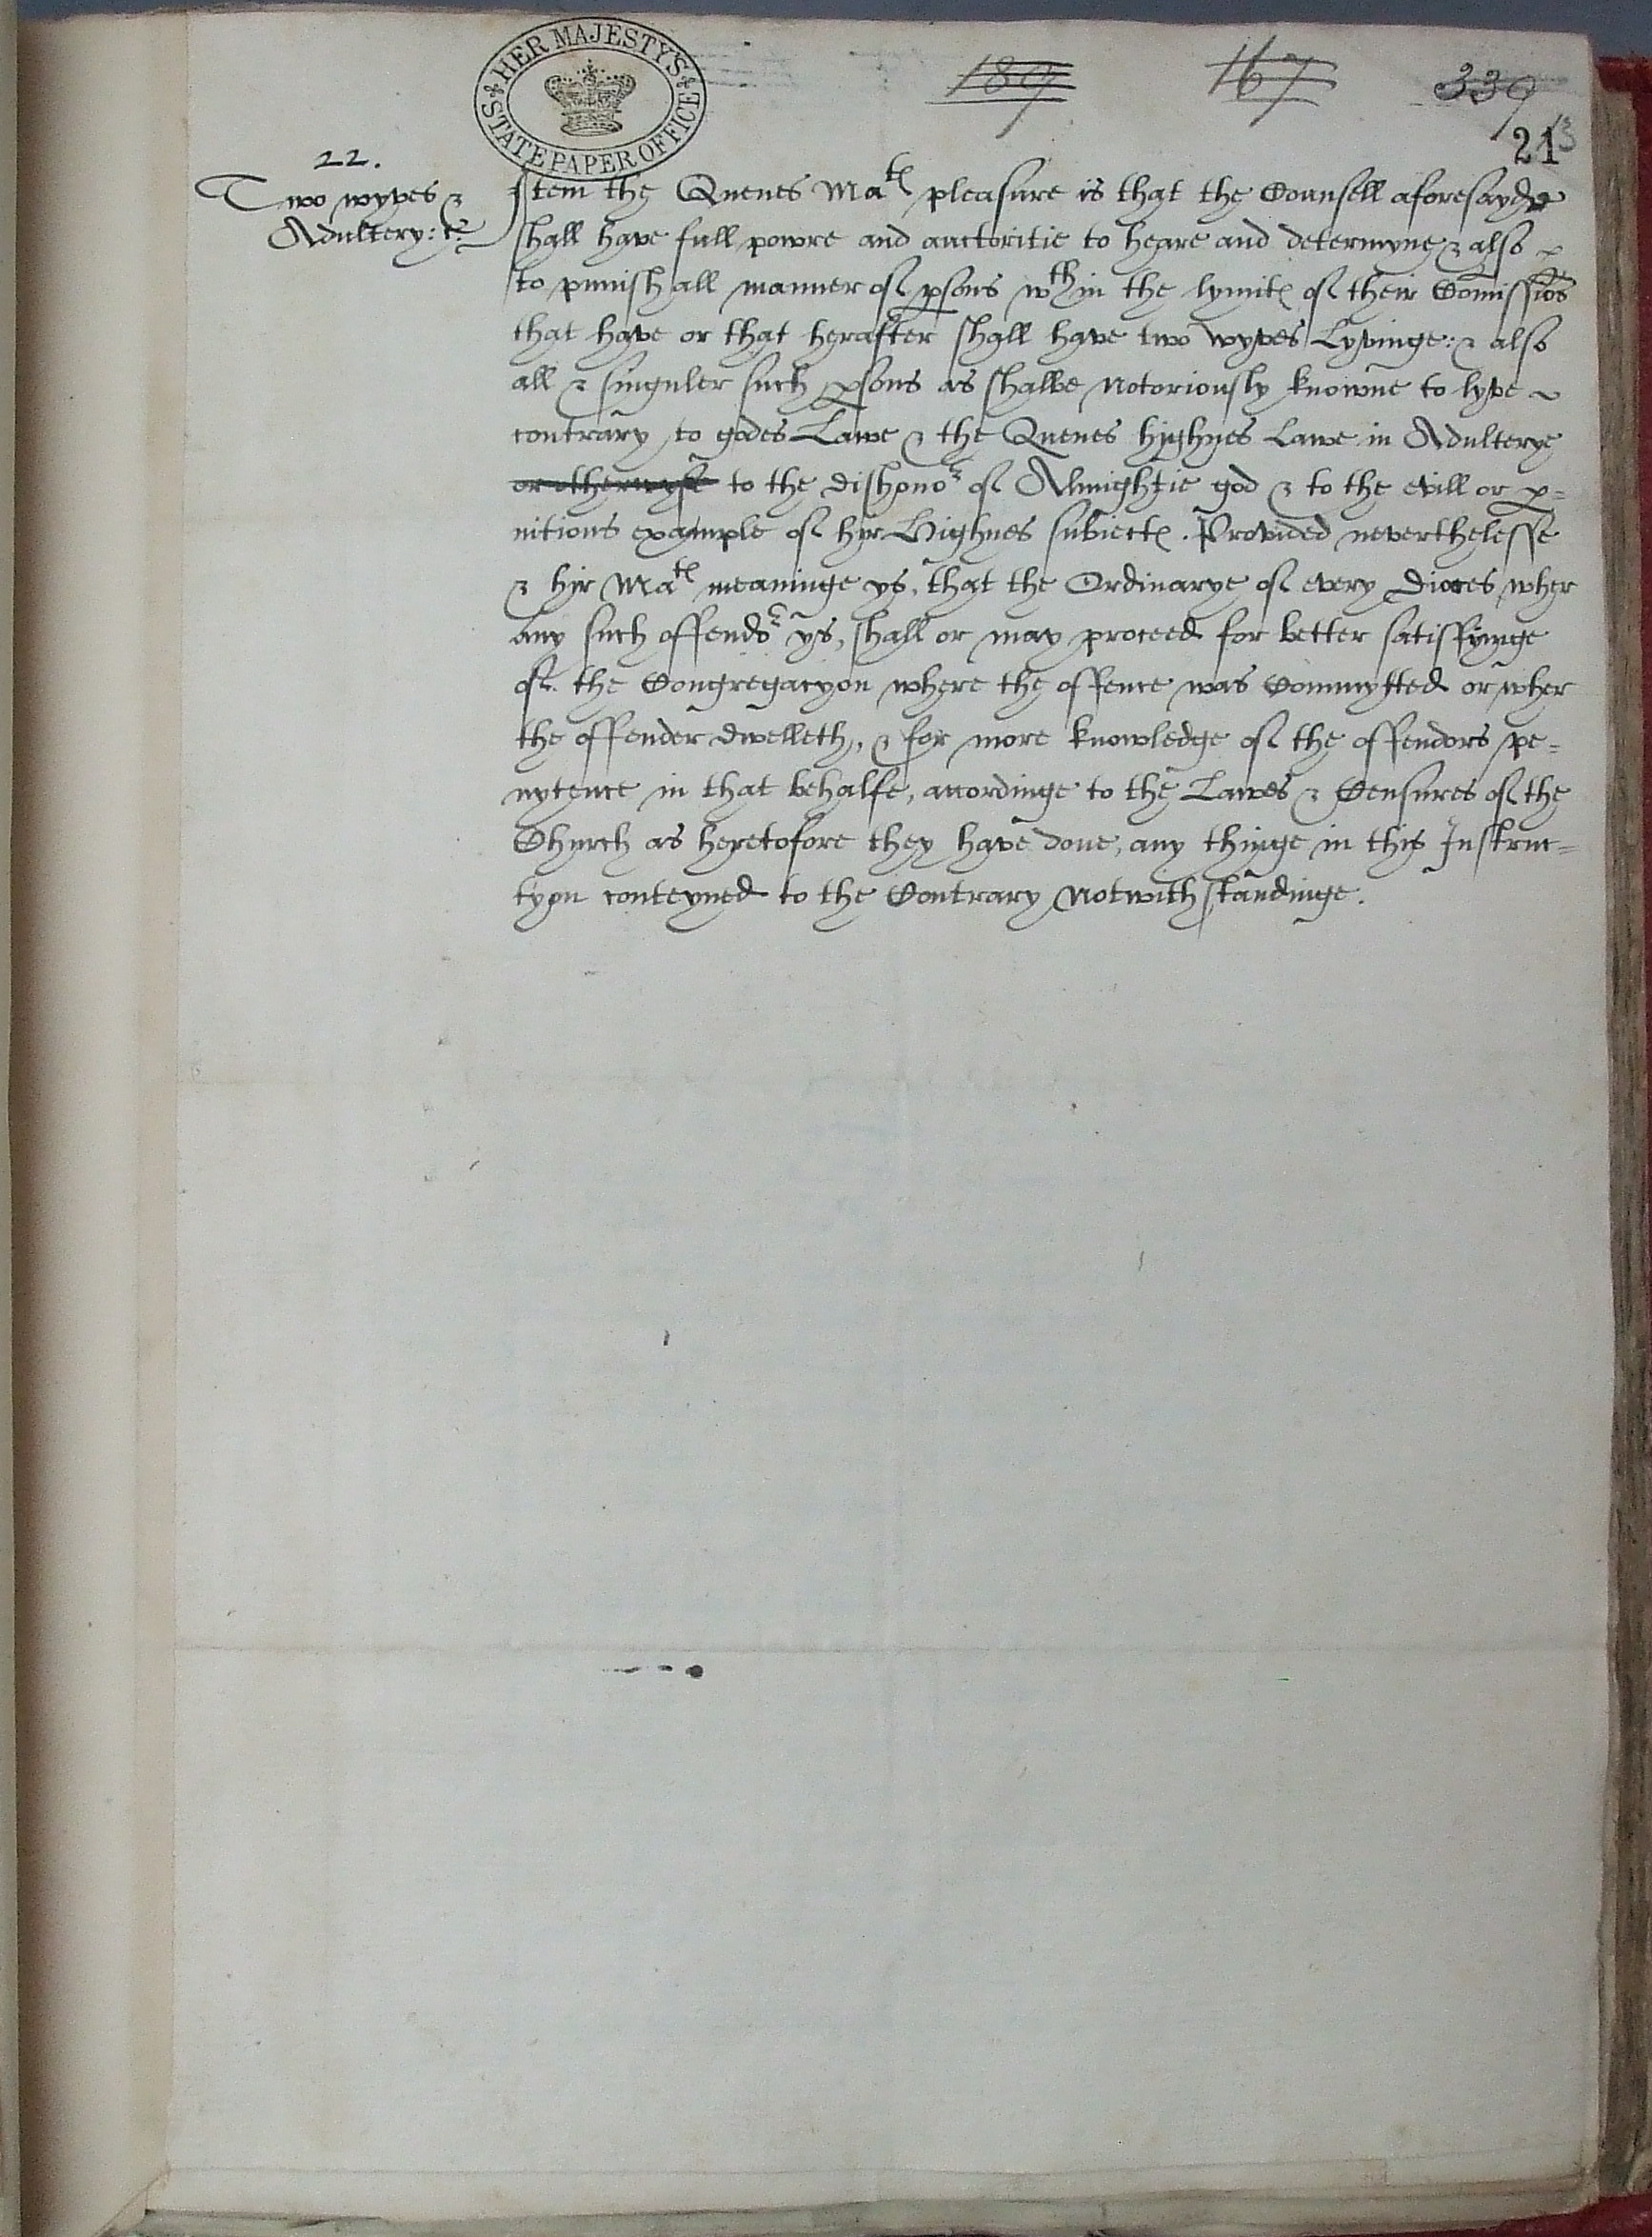 HER MAJESTY'S STATE PAPER OFFICE
189 167 339
213
22.
Two wyves &
Adultery: &c
Item the Quenes Matꝭ pleasure is that the Counsell aforesayde
shall have full powre and auctoritie to heare and determyne & also
to punish all manner of ꝑsons wth in the lymitꝭ of their Comissiōs
that have or that herafter shall have two wyves Lyvinge: & also
all & singuler such ꝑsons as shalbe Notoriously knowne to lyve
contrary to godes Lawe & the Quenes hyghnes Lawe in Adulterye
or otherwyse to the dishonor of Almightie god & to the evill or ꝑ=
nitious example of hyr Highnes subiectꝭ. Provided neverthelesse
& hyr Matꝭ meaninge ys, that the Ordinarye of every Dioces wher
any such offendor ys, shall or may proceed for better satisfyinge
of the Congregacyon where the offence was Commytted or wher
the offender dwelleth, & for more knowledge of the offendors pe=
nytence in that behalfe, accordinge to the Lawes & Censures of the
Church as heretofore they have done, any thinge in this Instruc=
tyon conteyned to the Contrary Notwithstandinge.